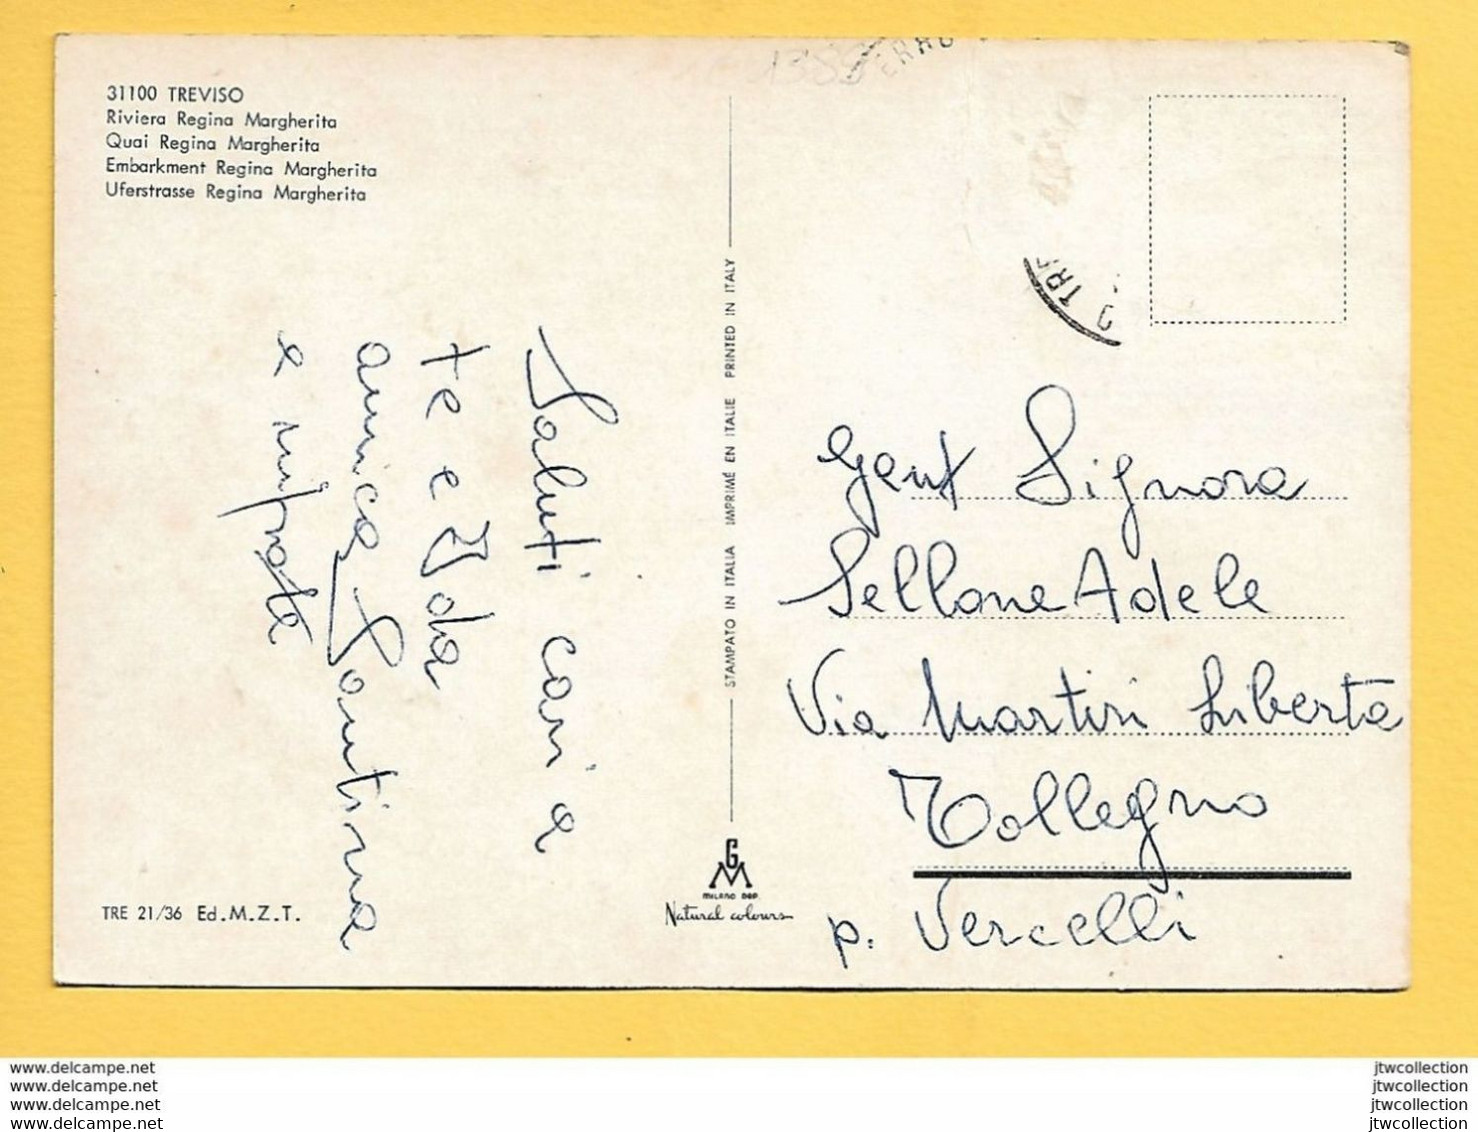 31100 TREVISO
Riviera Regina Margherita
Quai Regina Margherita
Embarkment Regina Margherita
Uferstrasse Regina Margherita
Saluti cari a
te e Ida
amica Santina
e nipote
TRE 21/36 Ed.M.Z.T.
STAMPATO IN ITALIA IMPRIMÉ EN ITALIE PRINTED IN ITALY
GM
MILANO DEP.
Natural colours
Gent Signora
Sellone Adele
Via Martiri Libertà
Tollegno
p. Vercelli
www.delcampe.net
www.delcampe.net
www.delcampe.net
www.delcampe.net
jtwcollection
jtwcollection
jtwcollection
jtwcollection